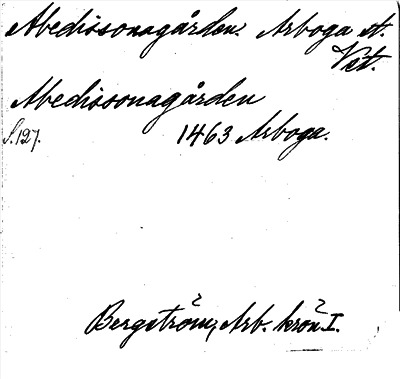 Abedissonagården. Arboga st.
Vstl.
Abedissonagården
S. 127. 1463 Arboga.
Bergström, Arb. krön. I.